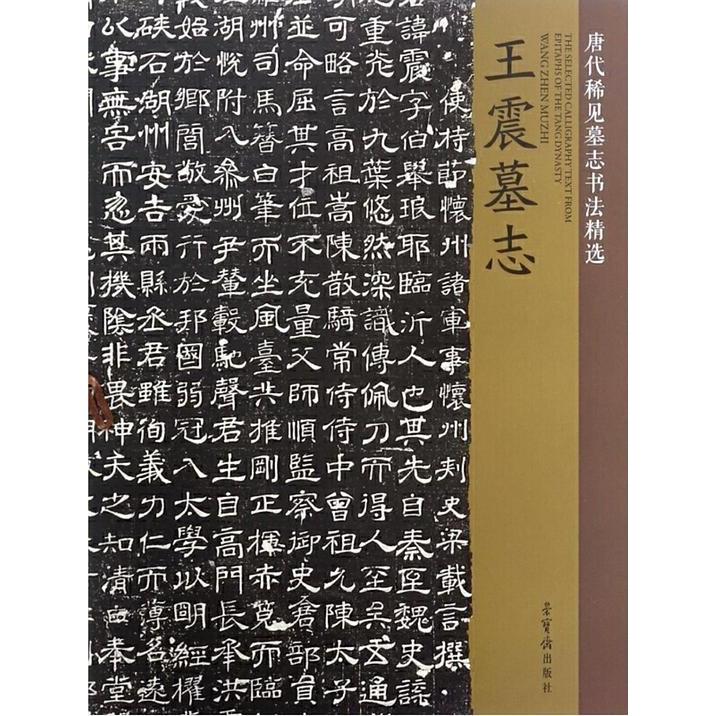 唐代稀见墓志书法精选
THE SELECTED CALLIGRAPHY TEXT FROM
EPITAPHS OF THE TANG DYNASTY
WANG ZHEN MUZHI
王震墓志
荣宝斋出版社
使持節懷州諸軍事懷州刾史梁載言撰
君諱震字伯舉琅耶臨沂人也其先自秦至魏史諜
重光於九葉悠然深識傳佩刀而得人至吴
可略言高祖嵩陳散騎常侍侍中曾祖允陳太子
並命屈其才位不充量父師順監察御史倉部員
州司馬簮白筆而坐風臺共推剛正揮赤筧而臨
湖悦附入叅州尹輦轂馳聲君生自高門長承洪
始於鄉閭敬愛行於邦國弱冠入太學以明經擢
硤石湖州安吉兩縣丞君雖徇義力仁而漙名遠
以寡無咎而忍其機陰非畏神天之知清